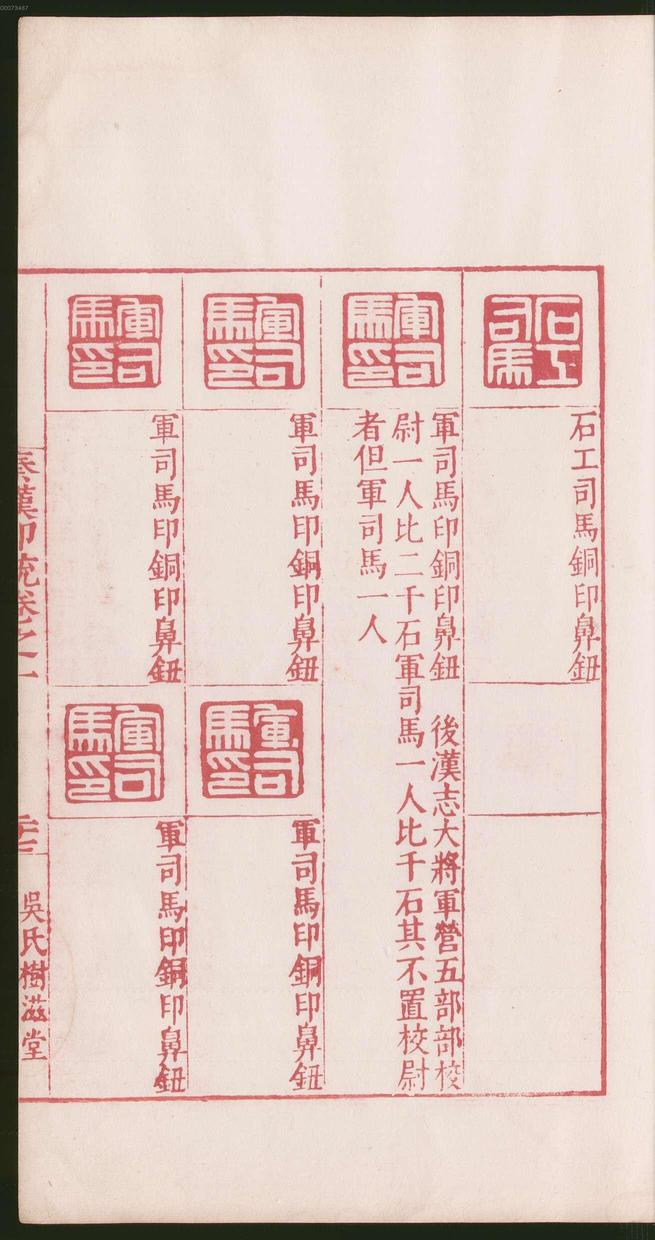 00073487
石工司馬
石工司馬銅印鼻鈕
軍司馬印
軍司馬印銅印鼻鈕　後漢志大將軍營五部部校
尉一人比二千石軍司馬一人比千石其不置校尉
者但軍司馬一人
軍司馬印
軍司馬印銅印鼻鈕
軍司馬印
軍司馬印銅印鼻鈕
軍司馬印
軍司馬印銅印鼻鈕
軍司馬印
軍司馬印銅印鼻鈕
秦漢印統卷之一
吳氏樹滋堂